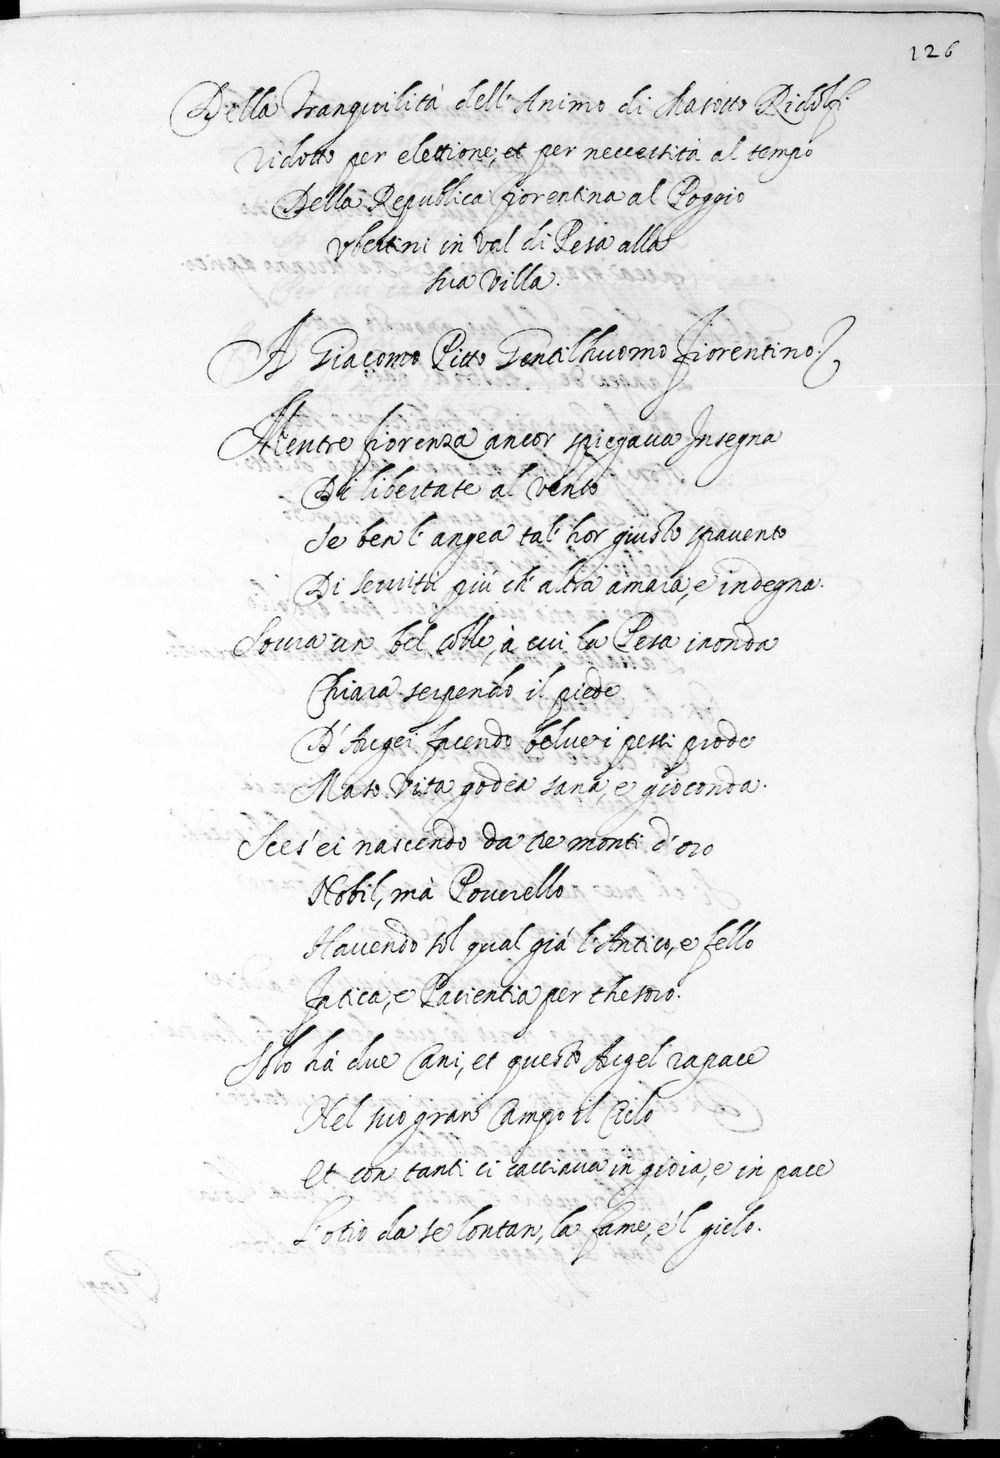 126
Della Tranquilità dell'Animo di Masotto Ridolfi.
ridotto per elettione, et per necessità al tempo
Della Republica fiorentina al Poggio
Ubertini in Val di Pesa alla
sua Villa.
A Giacomo Pitto Gentilhuomo Fiorentino.
Mentre fiorenza ancor spiegava Insegna
Di libertate al vento
Se ben l'angea tal'hor giusto spavento
Di servitù più ch'altra amara, e indegna.
Sovra un bel Colle, à cui la Pesa inonda
Chiara serpendo il piede
D'Augei facendo belve i pesci prede
Maso Vita godea sana, e gioconda.
Sces'ei nascendo da tre monti d'oro
Nobil, mà Poverello
Havendo sol qual già l'Antico, e fello
Fatica, e Pacientia per thesoro.
Solo hà due Cani, et questo Augel rapace
Nel suo gran Campo il Cielo
Et con tanti ei cacciava in gioia, e in pace
L'otio da se lontan, la fame, e'l gielo.